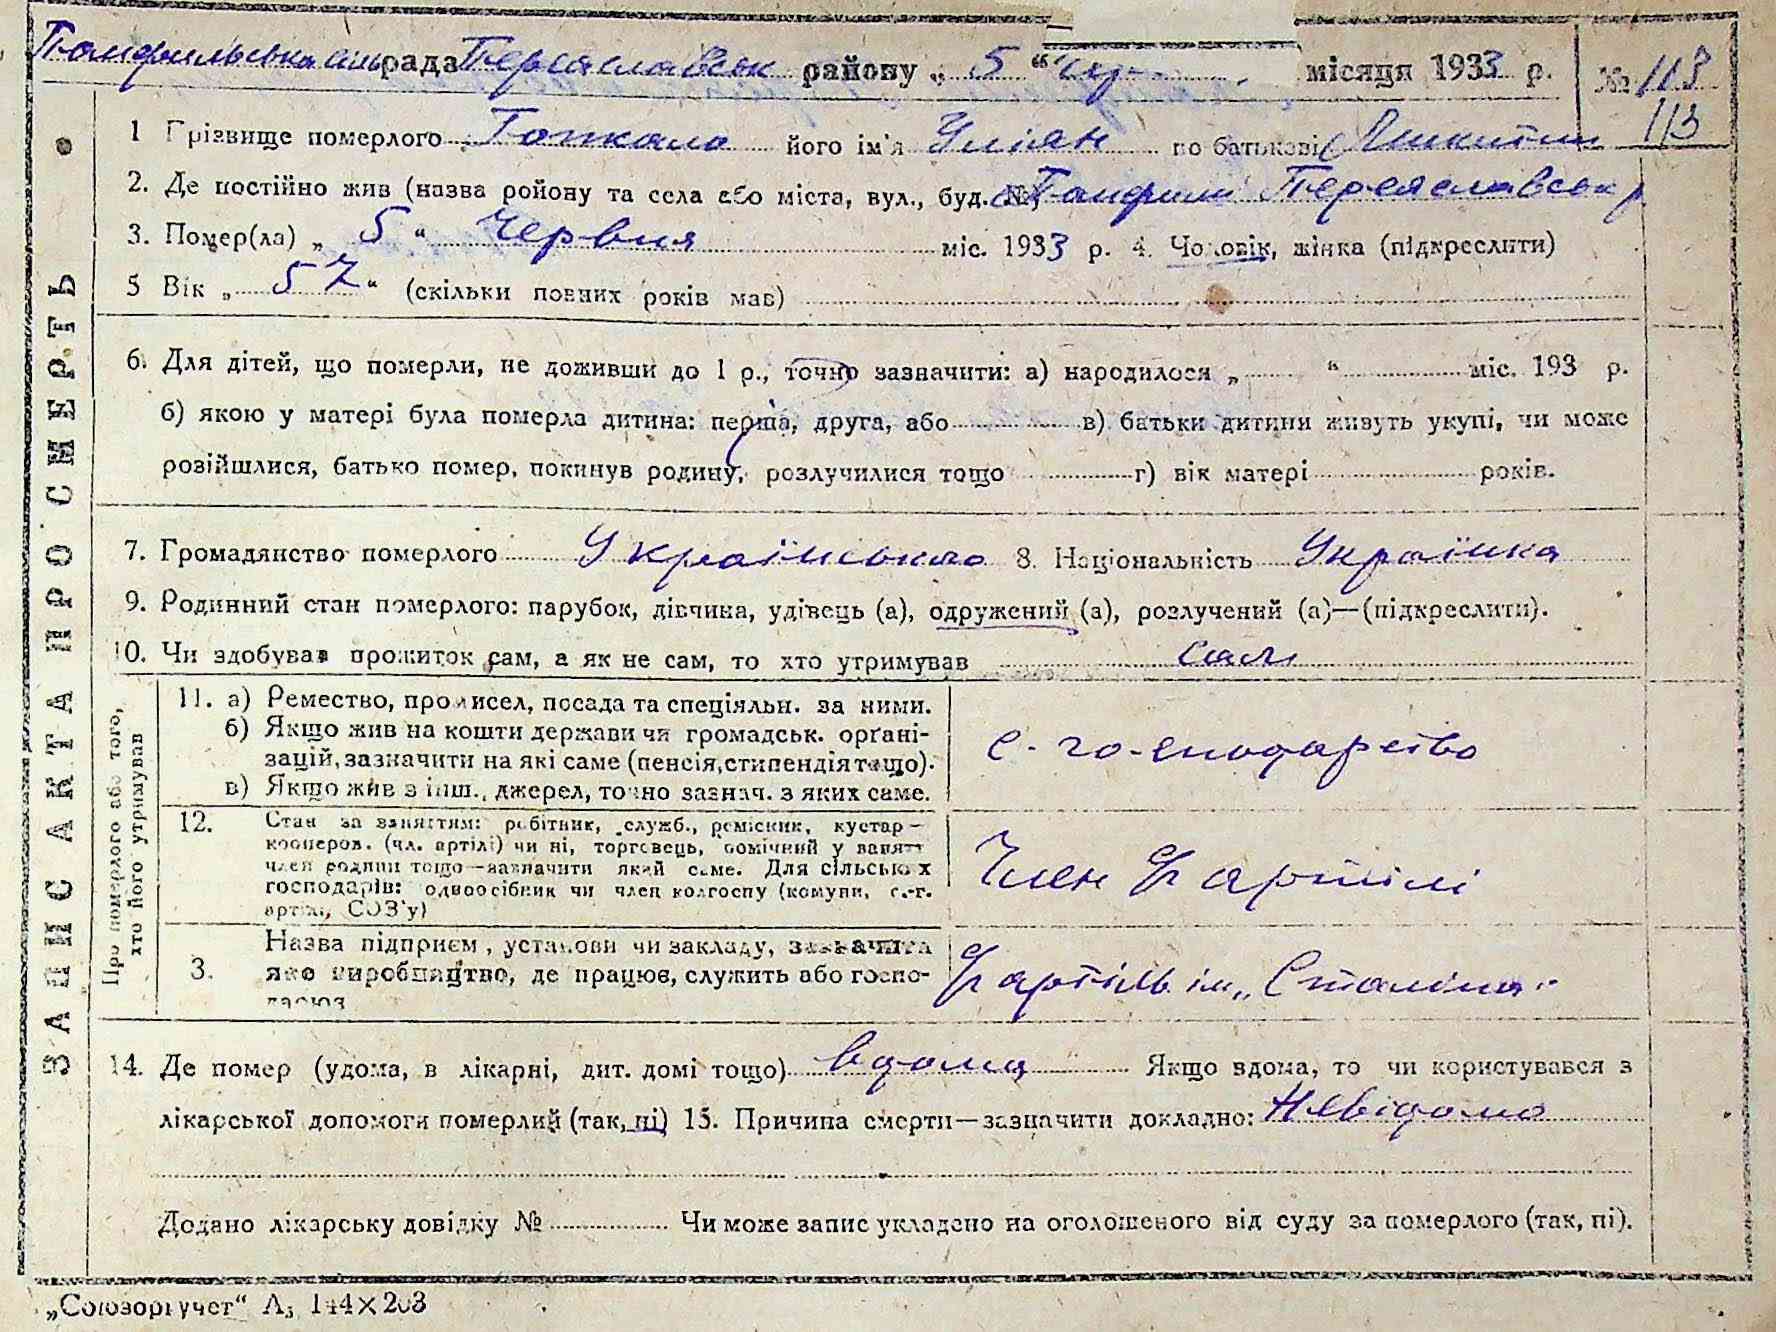 Помфильська сільрада Переяславськ району „ 5 “ чер. місяця 1933 р. № 113
113
1 Прізвище померлого Гопкало його ім'я Уліян по батькові Микитин
2. Де постійно жив (назва району та села або міста, вул., буд. №) с Помфили Переяславськ р
3. Помер(ла) „ 5 “ Червня міс. 1933 р. 4. Чоловік, жінка (підкреслити)
5 Вік „ 57 “ (скільки повних років мав)
6. Для дітей, що померли, не доживши до 1 р., точно зазначити: а) народилося „ “ міс. 193 р.
б) якою у матері була померла дитина: перша, друга, або в) батьки дитини живуть укупі, чи може
розійшлися, батько помер, покинув родину, розлучилися тощо г) вік матері років.
7. Громадянство померлого Українського 8. Національність Українка
9. Родинний стан померлого: парубок, дівчина, удівець (а), одружений (а), розлучений (а)—(підкреслити).
10. Чи здобував прожиток сам, а як не сам, то хто утримував сам
ЗАПИС АКТА ПРО СМЕРТЬ
Про померлого або того,
хто його утримував
11. а) Ремество, промисел, посада та спеціяльн. за ними.
б) Якщо жив на кошти держави чи громадськ. орґані-
зацій, зазначити на які саме (пенсія, стипендія тощо).
в) Якщо жив з інш., джерел, точно зазнач. з яких саме.
с. го-сподарство
12. Стан за заняттям: робітник, служб., ремісник, кустар—
кооперов. (чл. артілі) чи ні, торговець, помічний у занятт
член родини тощо—зазначити який саме. Для сільських
господарів: одноосібник чи член колгоспу (комуни, с.-г.
артілі, СОЗ'у)
Член артілі
3. Назва підприєм, установи чи закладу, зазначити
яке виробництво, де працює, служить або госпо-
дарює
артіль ім „Сталіна“
14. Де помер (удома, в лікарні, дит. домі тощо) вдома Якщо вдома, то чи користувався з
лікарської допомоги померлий (так, ні) 15. Причина смерти—зазначити докладно: Невідома
Додано лікарську довідку № Чи може запис укладено на оголошеного від суду за померлого (так, ні).
„Союзоргучет“ А₅ 144×203